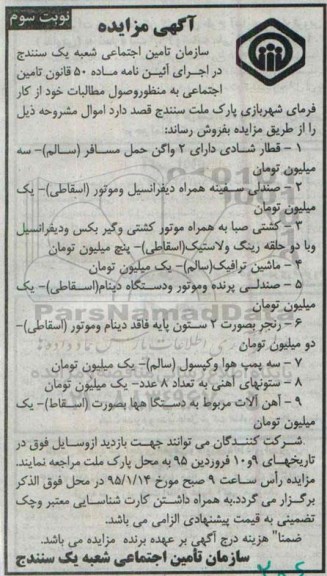 نوبت سوم
آگهی مزایده
سازمان تامین اجتماعی شعبه یک سنندج
در اجرای آئین نامه ماده ۵۰ قانون تامین
اجتماعی به منظور وصول مطالبات خود از کار
فرمای شهربازی پارک ملت سنندج قصد دارد اموال مشروحه ذیل
را از طریق مزایده بفروش رساند:
۱ - قطار شادی دارای ۲ واگن حمل مسافر (سالم)- سه
میلیون تومان
۲ - صندلی سفینه همراه دیفرانسیل وموتور (اسقاطی)- یک
میلیون تومان
۳ - کشتی صبا به همراه موتور کشتی وگیر بکس ودیفرانسیل
وبا دو حلقه رینگ ولاستیک(اسقاطی)- پنج میلیون تومان
۴ - ماشین ترافیک(سالم)- یک میلیون تومان
۵ - صندلی پرنده وموتور ودستگاه دینام(اسقاطی)- یک
میلیون تومان
۶ - رنجر بصورت ۲ ستون پایه فاقد دینام وموتور (اسقاطی)-
دو میلیون تومان
۷ - سه پمپ هوا وکپسول (سالم)- یک میلیون تومان
۸ - ستونهای آهنی به تعداد ۸ عدد- یک میلیون تومان
۹ - آهن آلات مربوط به دستگا هها بصورت (اسقاط)- یک
میلیون تومان
.شرکت کنندگان می توانند جهت بازدید ازوسایل فوق در
تاریخهای ۹و۱۰ فروردین ۹۵ به محل پارک ملت مراجعه نمایند.
مزایده رأس ساعت ۹ صبح مورخ ۹۵/۱/۱۴ در محل فوق الذکر
برگزار می گردد.به همراه داشتن کارت شناسایی معتبر وچک
تضمینی به قیمت پیشنهادی الزامی می باشد.
ضمنا" هزینه درج آگهی بر عهده برنده مزایده می باشد.
سازمان تأمین اجتماعی شعبه یک سنندج
ParsNamadData